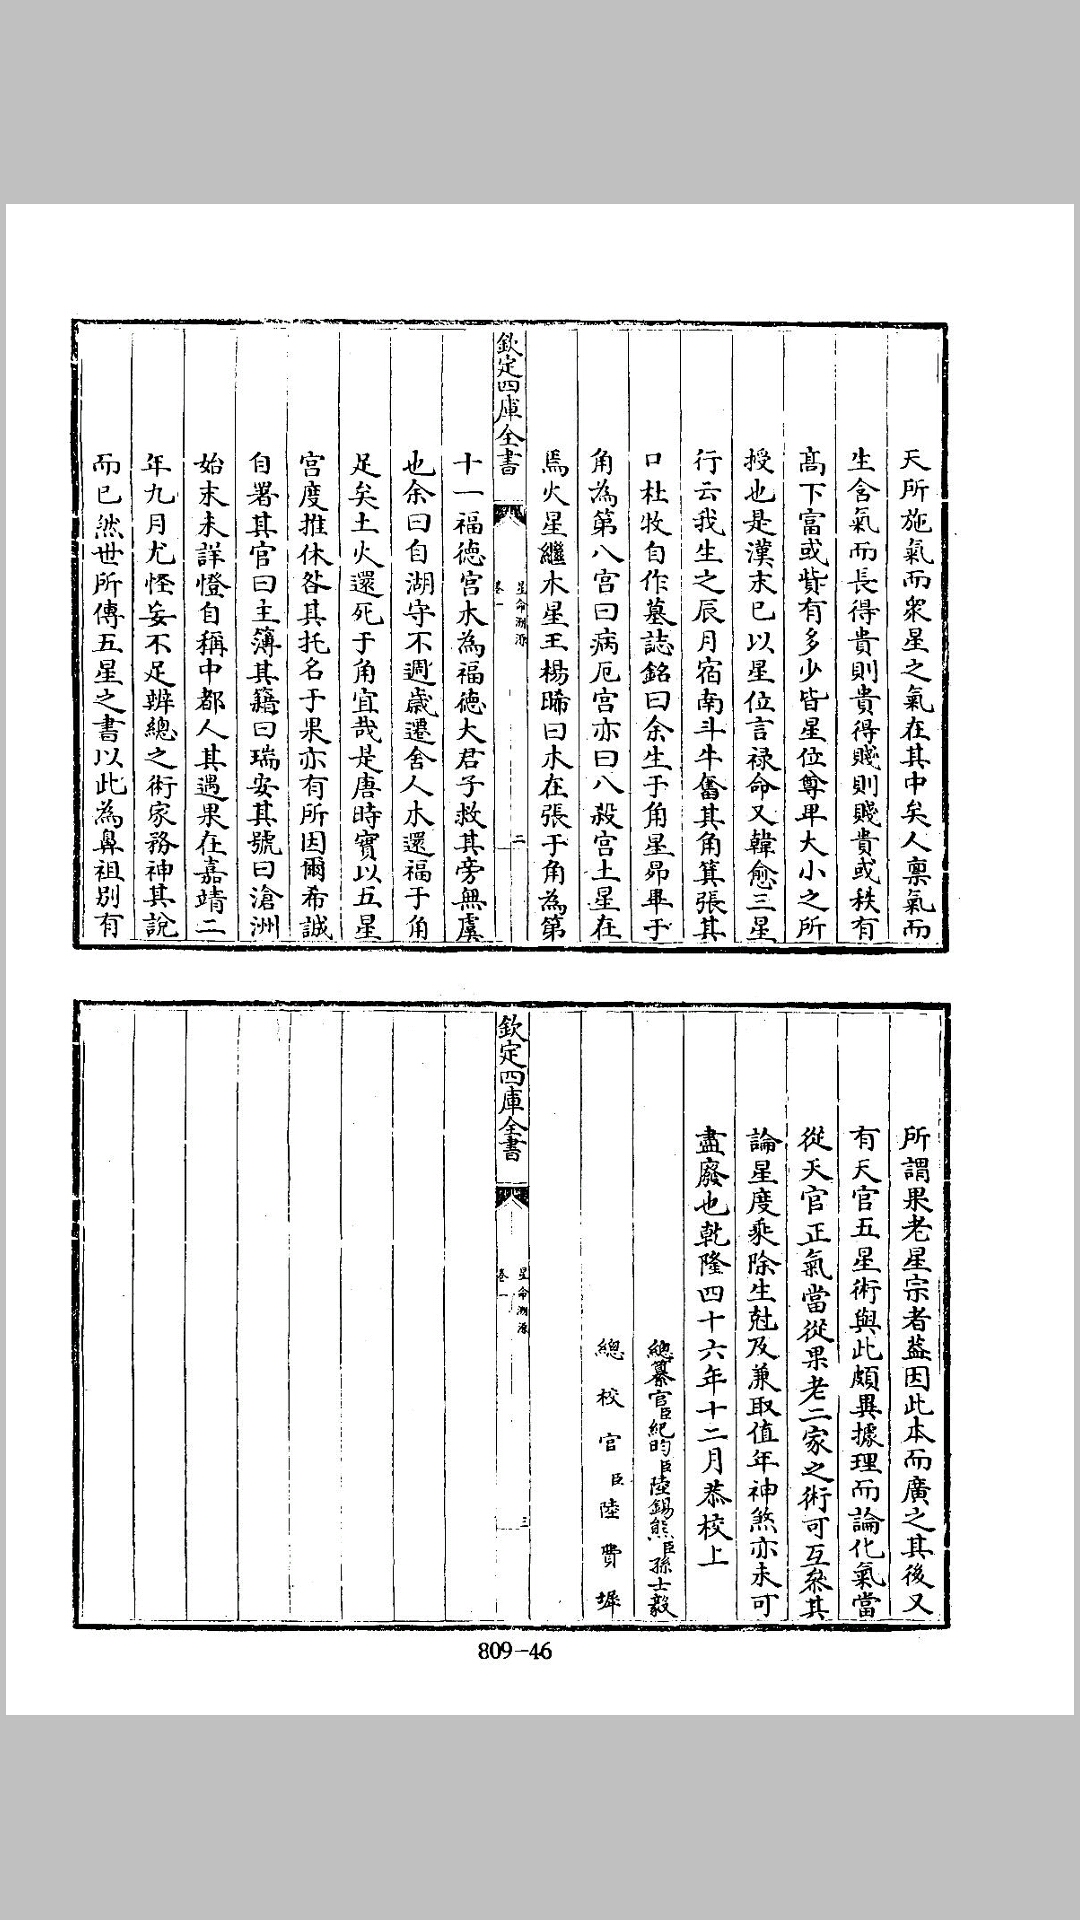 天所施氣而衆星之氣在其中矣人禀氣而
生含氣而長得貴則貴得賤則賤貴或秩有
髙下富或貲有多少皆星位尊卑大小之所
授也是漢末已以星位言禄命又韓愈三星
行云我生之辰月宿南斗牛奮其角箕張其
口杜牧自作墓誌銘曰余生于角星昴畢于
角為第八宫曰病厄宫亦曰八殺宫土星在
焉火星繼木星王楊晞曰木在張于角為第
欽定四庫全書
星命溯源
卷一
二
十一福德宫木為福德大君子救其旁無虞
也余曰自湖守不週歲遷舍人木還福于角
足矣土火還死于角宜哉是唐時實以五星
宫度推休咎其托名于果亦有所因爾希誠
自署其官曰主簿其籍曰瑞安其號曰滄洲
始末未詳憕自稱中都人其遇果在嘉靖二
年九月尤怪妄不足辨總之術家務神其說
而已然世所傳五星之書以此為鼻祖别有
所謂果老星宗者葢因此本而廣之其後又
有天官五星術與此頗異據理而論化氣當
從天官正氣當從果老二家之術可互叅其
論星度乘除生尅及兼取值年神煞亦未可
盡廢也乾隆四十六年十二月恭校上
總纂官臣紀昀臣陸錫熊臣孫士毅
總校官臣陸費墀
欽定四庫全書
星命溯源
卷一
三
809-46